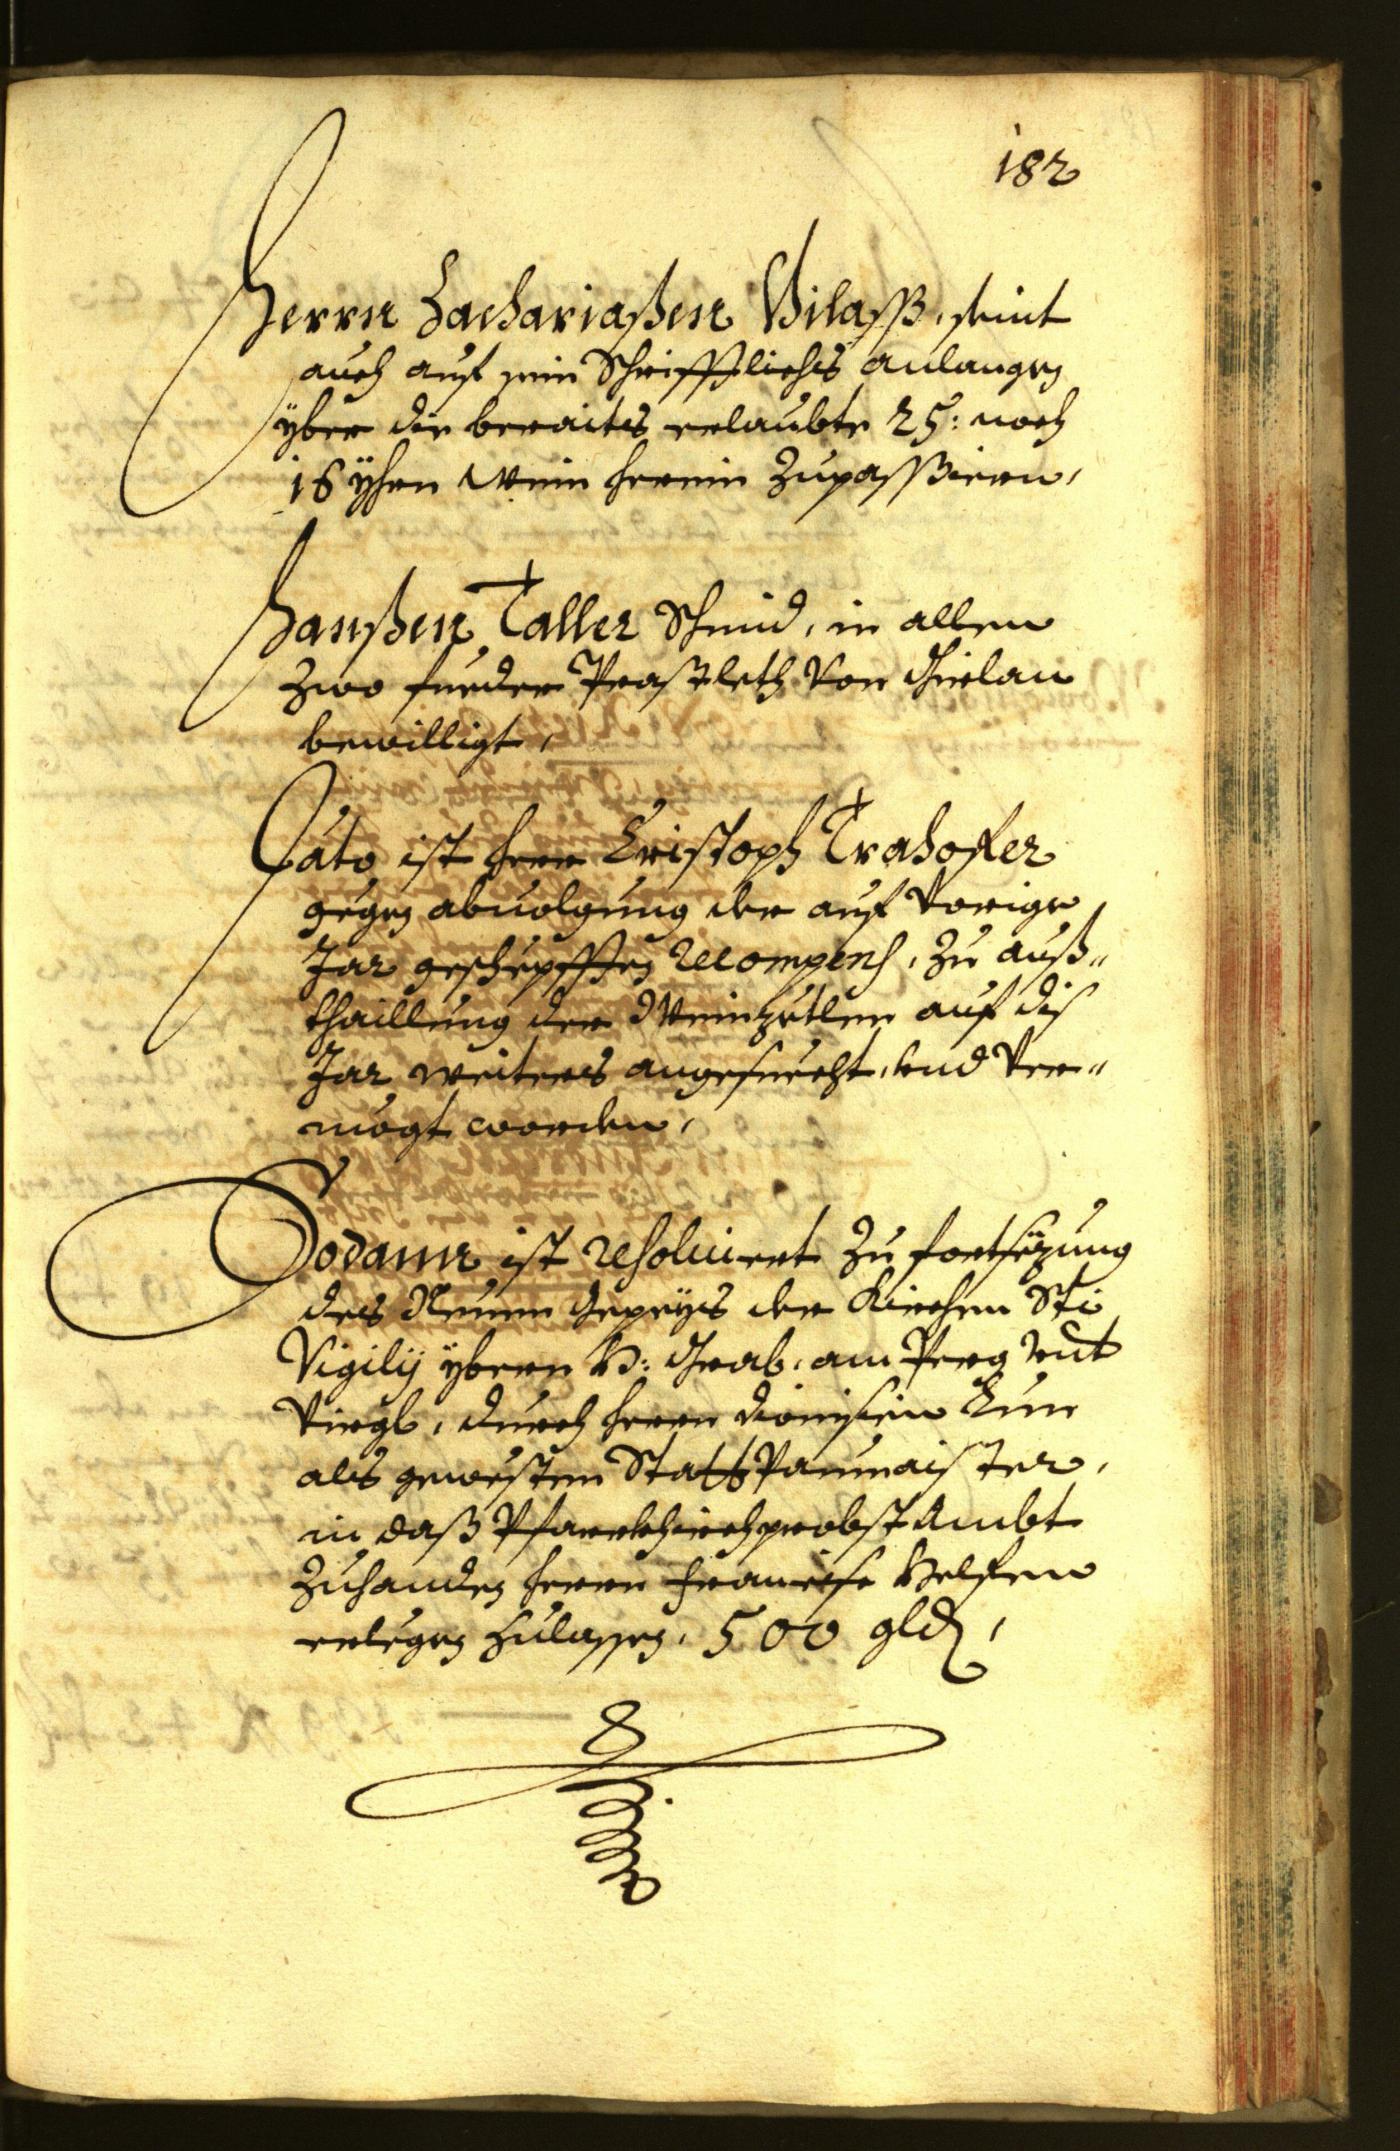 182
Herrn Zachariaßen Vilaß, seint
auch auf sein Schrifftliches anlangen
yber die beraits erlaubte 25: noch
16 Yhrn Wein herein zupassieren,
Hansßen Taller Schmid, in allem
zwo fueder Prastleth von Girlan
bewilligt,
Dato ist Herr Cristoph Trahofer
gegen abuolgung der auf vorige
Jar geschepfften Recompens, zu auß„
thaillung der Weinzetlen auf diß
Jar weiters angesuecht, und ver„
mögt worden,
Sodann ist resoluiert zu fortsezung
des Neuen Gepeys der Kirchen Sti
Vigilij yberm H: Grab, am Perg unt
Virgl, durch Herrn Dionisien Kun
als gewesten Statt Paumaister,
in daß Pfarrkhirchprobst Ambt
zuhanden Herrn
erlegen zulassen, 500 gld,